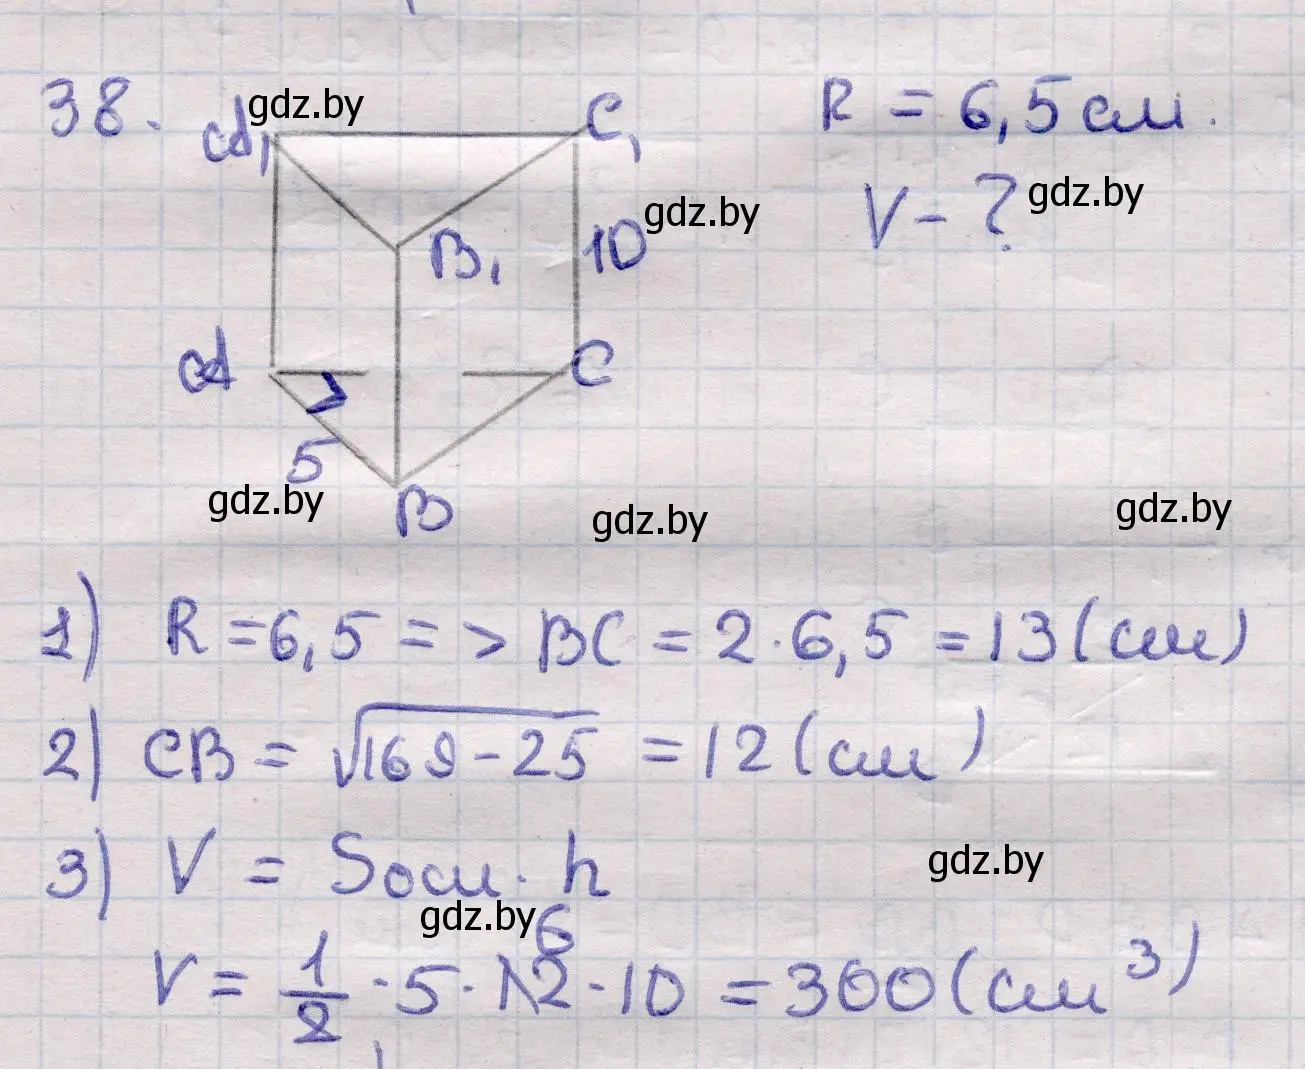 38.
gdz.by
A₁
C₁
R = 6,5 см.
V - ?
gdz.by
gdz.by
B₁
10
A
C
5
gdz.by
B
gdz.by
gdz.by
1) R = 6,5 => BC = 2 · 6,5 = 13 (см)
2) CB = √169 - 25 = 12 (см)
3) V = Sосн · h
gdz.by
gdz.by
6
V = 1/2 · 5 · 12 · 10 = 300 (см³)